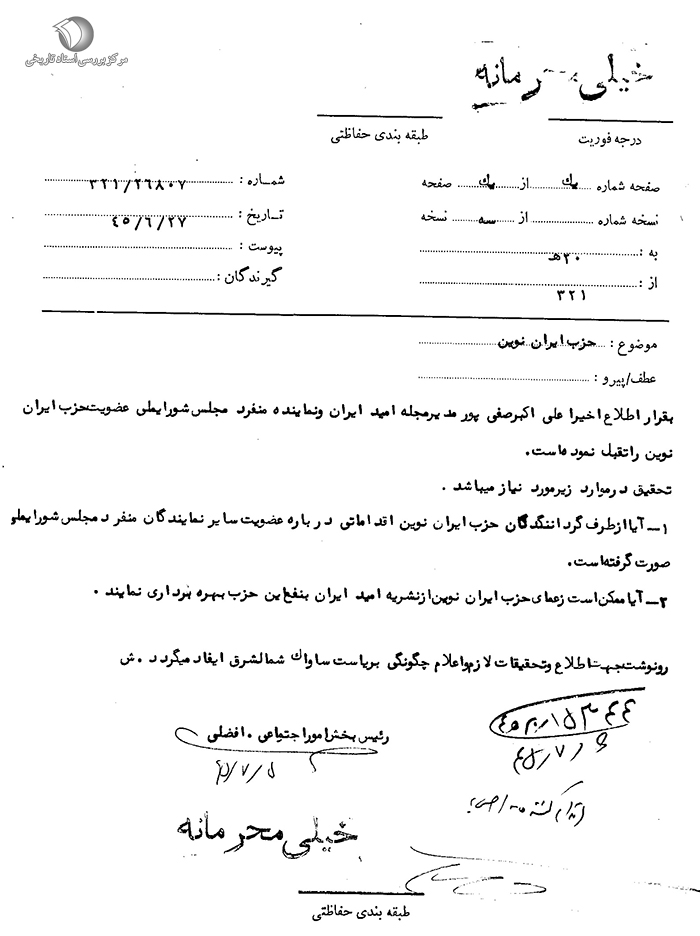 مرکز بررسی اسناد تاریخی
خیلی محرمانه
درجه فوریت
طبقه بندی حفاظتی
صفحه شماره یك از یك صفحه
نسخه شماره از سه نسخه
به : ۲۰هـ
از : ۳۲۱
شماره : ۳۲۱/۲۶۸۰۷
تاریخ : ۴۵/۶/۲۷
پیوست :
گیرندگان :
موضوع : حزب ایران نوین
عطف/پیرو :
بقرار اطلاع اخیرا علی اکبرصفی پور مدیرمجله امید ایران ونماینده منفرد مجلس شورایملی عضویت حزب ایران
نوین راتقبل نموده‌است.
تحقیق درموارد زیرمورد نیاز میباشد .
۱- آیاازطرف گردانندگان حزب ایران نوین اقداماتی درباره عضویت سایر نمایندگان منفرد مجلس شورایملی
صورت گرفته‌است.
۲- آیاممکن‌است زعمای حزب ایران نوین ازنشریه امید ایران بنفع‌این حزب بهره برداری نمایند .
رونوشت‌جهت اطلاع وتحقیقات لازم‌واعلام چگونگی بریاست ساواك شمالشرق ایفاد میگردد . ش
رئیس بخش‌اموراجتماعی . افضلی
۴۵/۷/۵
۴۵/۷/۶
خیلی محرمانه
طبقه بندی حفاظتی